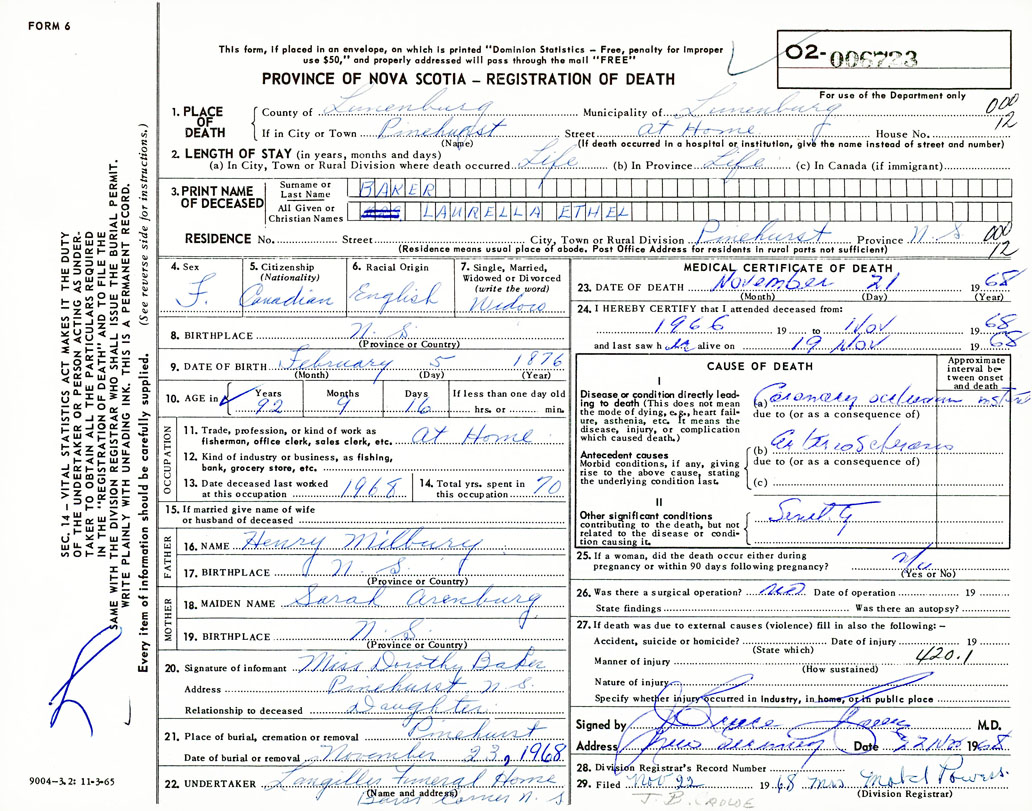 FORM 6
This form, if placed in an envelope, on which is printed "Dominion Statistics – Free, penalty for improper
use $50," and properly addressed will pass through the mail "FREE"
PROVINCE OF NOVA SCOTIA – REGISTRATION OF DEATH
02-006723
For use of the Department only
000
12
1. PLACE OF DEATH
County of Lunenburg Municipality of Lunenburg
If in City or Town Pinehurst Street at Home House No.
(Name) (If death occurred in a hospital or institution, give the name instead of street and number)
2. LENGTH OF STAY (in years, months and days)
(a) In City, Town or Rural Division where death occurred Life (b) In Province Life (c) In Canada (if immigrant)
3. PRINT NAME OF DECEASED
Surname or Last Name BAKER
All Given or Christian Names LAURELLA ETHEL
RESIDENCE No. Street City, Town or Rural Division Pinehurst Province N.S
(Residence means usual place of abode. Post Office Address for residents in rural parts not sufficient)
000
12
4. Sex F.
5. Citizenship (Nationality) Canadian
6. Racial Origin English
7. Single, Married, Widowed or Divorced (write the word) Widow
8. BIRTHPLACE N.S.
(Province or Country)
9. DATE OF BIRTH February 5 1876
(Month) (Day) (Year)
10. AGE in Years 92 Months 9 Days 16 If less than one day old hrs. or min.
OCCUPATION
11. Trade, profession, or kind of work as fisherman, office clerk, sales clerk, etc. at Home
12. Kind of industry or business, as fishing, bank, grocery store, etc.
13. Date deceased last worked at this occupation 1968
14. Total yrs. spent in this occupation 70
15. If married give name of wife or husband of deceased
FATHER
16. NAME Henry Milbury
17. BIRTHPLACE N.S.
(Province or Country)
MOTHER
18. MAIDEN NAME Sarah Arenburg
19. BIRTHPLACE N.S.
(Province or Country)
20. Signature of informant Miss Dorothy Baker
Address Pinehurst N.S.
Relationship to deceased Daughter
21. Place of burial, cremation or removal Pinehurst
Date of burial or removal November 23, 1968
22. UNDERTAKER Langilles Funeral Home
(Name and address)
Corner N.S
MEDICAL CERTIFICATE OF DEATH
23. DATE OF DEATH November 21 1968
(Month) (Day) (Year)
24. I HEREBY CERTIFY that I attended deceased from:
1966 19 to Nov 1968
and last saw h alive on 19 Nov 1968
CAUSE OF DEATH
Approximate interval between onset and death
I
Disease or condition directly leading to death (This does not mean the mode of dying, e.g., heart failure, asthenia, etc. It means the disease, injury, or complication which caused death.)
(a) Coronary
due to (or as a consequence of)
Antecedent causes
Morbid conditions, if any, giving rise to the above cause, stating the underlying condition last.
(b) Arteriosclerosis
due to (or as a consequence of)
(c)
II
Other significant conditions contributing to the death, but not related to the disease or condition causing it.
Senility
25. If a woman, did the death occur either during pregnancy or within 90 days following pregnancy?
(Yes or No)
26. Was there a surgical operation? no Date of operation 19
State findings Was there an autopsy?
27. If death was due to external causes (violence) fill in also the following: –
Accident, suicide or homicide? Date of injury 19
(State which)
420.1
Manner of injury
(How sustained)
Nature of injury
Specify whether injury occurred in Industry, in home, or in public place
Signed by M.D.
Address Date 22 Nov 1968
28. Division Registrar's Record Number
29. Filed Nov 22 1968 Mrs Powers
(Division Registrar)
SEC. 14 – VITAL STATISTICS ACT MAKES IT THE DUTY
OF THE UNDERTAKER OR PERSON ACTING AS UNDER-
TAKER TO OBTAIN ALL THE PARTICULARS REQUIRED
IN THE "REGISTRATION OF DEATH" AND TO FILE THE
SAME WITH THE DIVISION REGISTRAR WHO SHALL ISSUE THE BURIAL PERMIT.
WRITE PLAINLY WITH UNFADING INK. THIS IS A PERMANENT RECORD.
Every item of information should be carefully supplied. (See reverse side for instructions.)
9004-3.2: 11-3-65